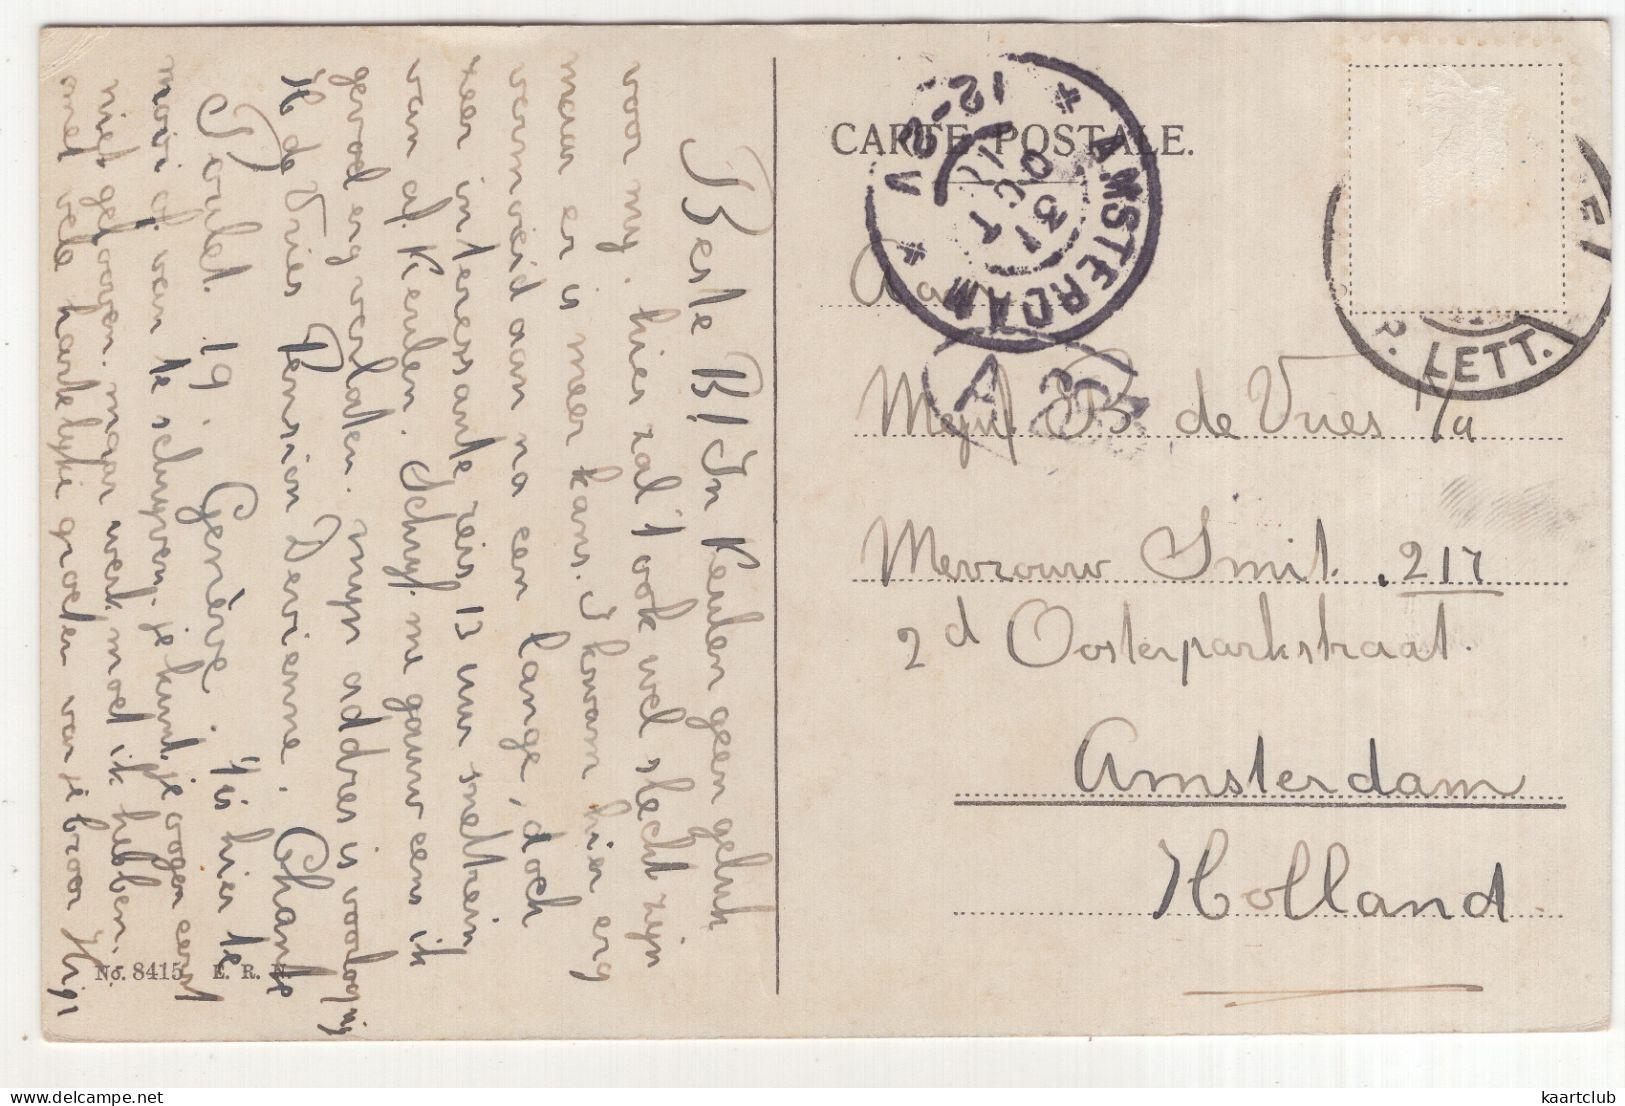 Beste B! In Keulen geen geluk
voor my. hier zal 't ook wel slecht zijn
maar er is meer kans. I kwam hier erg
vermoeid aan na een lange, doch
zeer interessante reis 13 uur sneltrein
van af Keulen. Schryf me gauw eens ik
gevoel erg verlaten. myn addres is voorlopig
H de Vries Pension Devienne. Chante
Poulet. 19. Genève. 't is hier te
mooi of van te schryven. je kunt je oogen eerst
niet gelooven. maar werk moet ik hebben.
met vele hartelyke groeten van je broer
No. 8415 E. R. N.
CARTE POSTALE.
AMSTERDAM
31 OCT
12-
V
LETT.
Aan
Mejuf B de Vries
Mevrouw Smit. 217
2d Oosterparkstraat.
Amsterdam
Holland
kaartclub